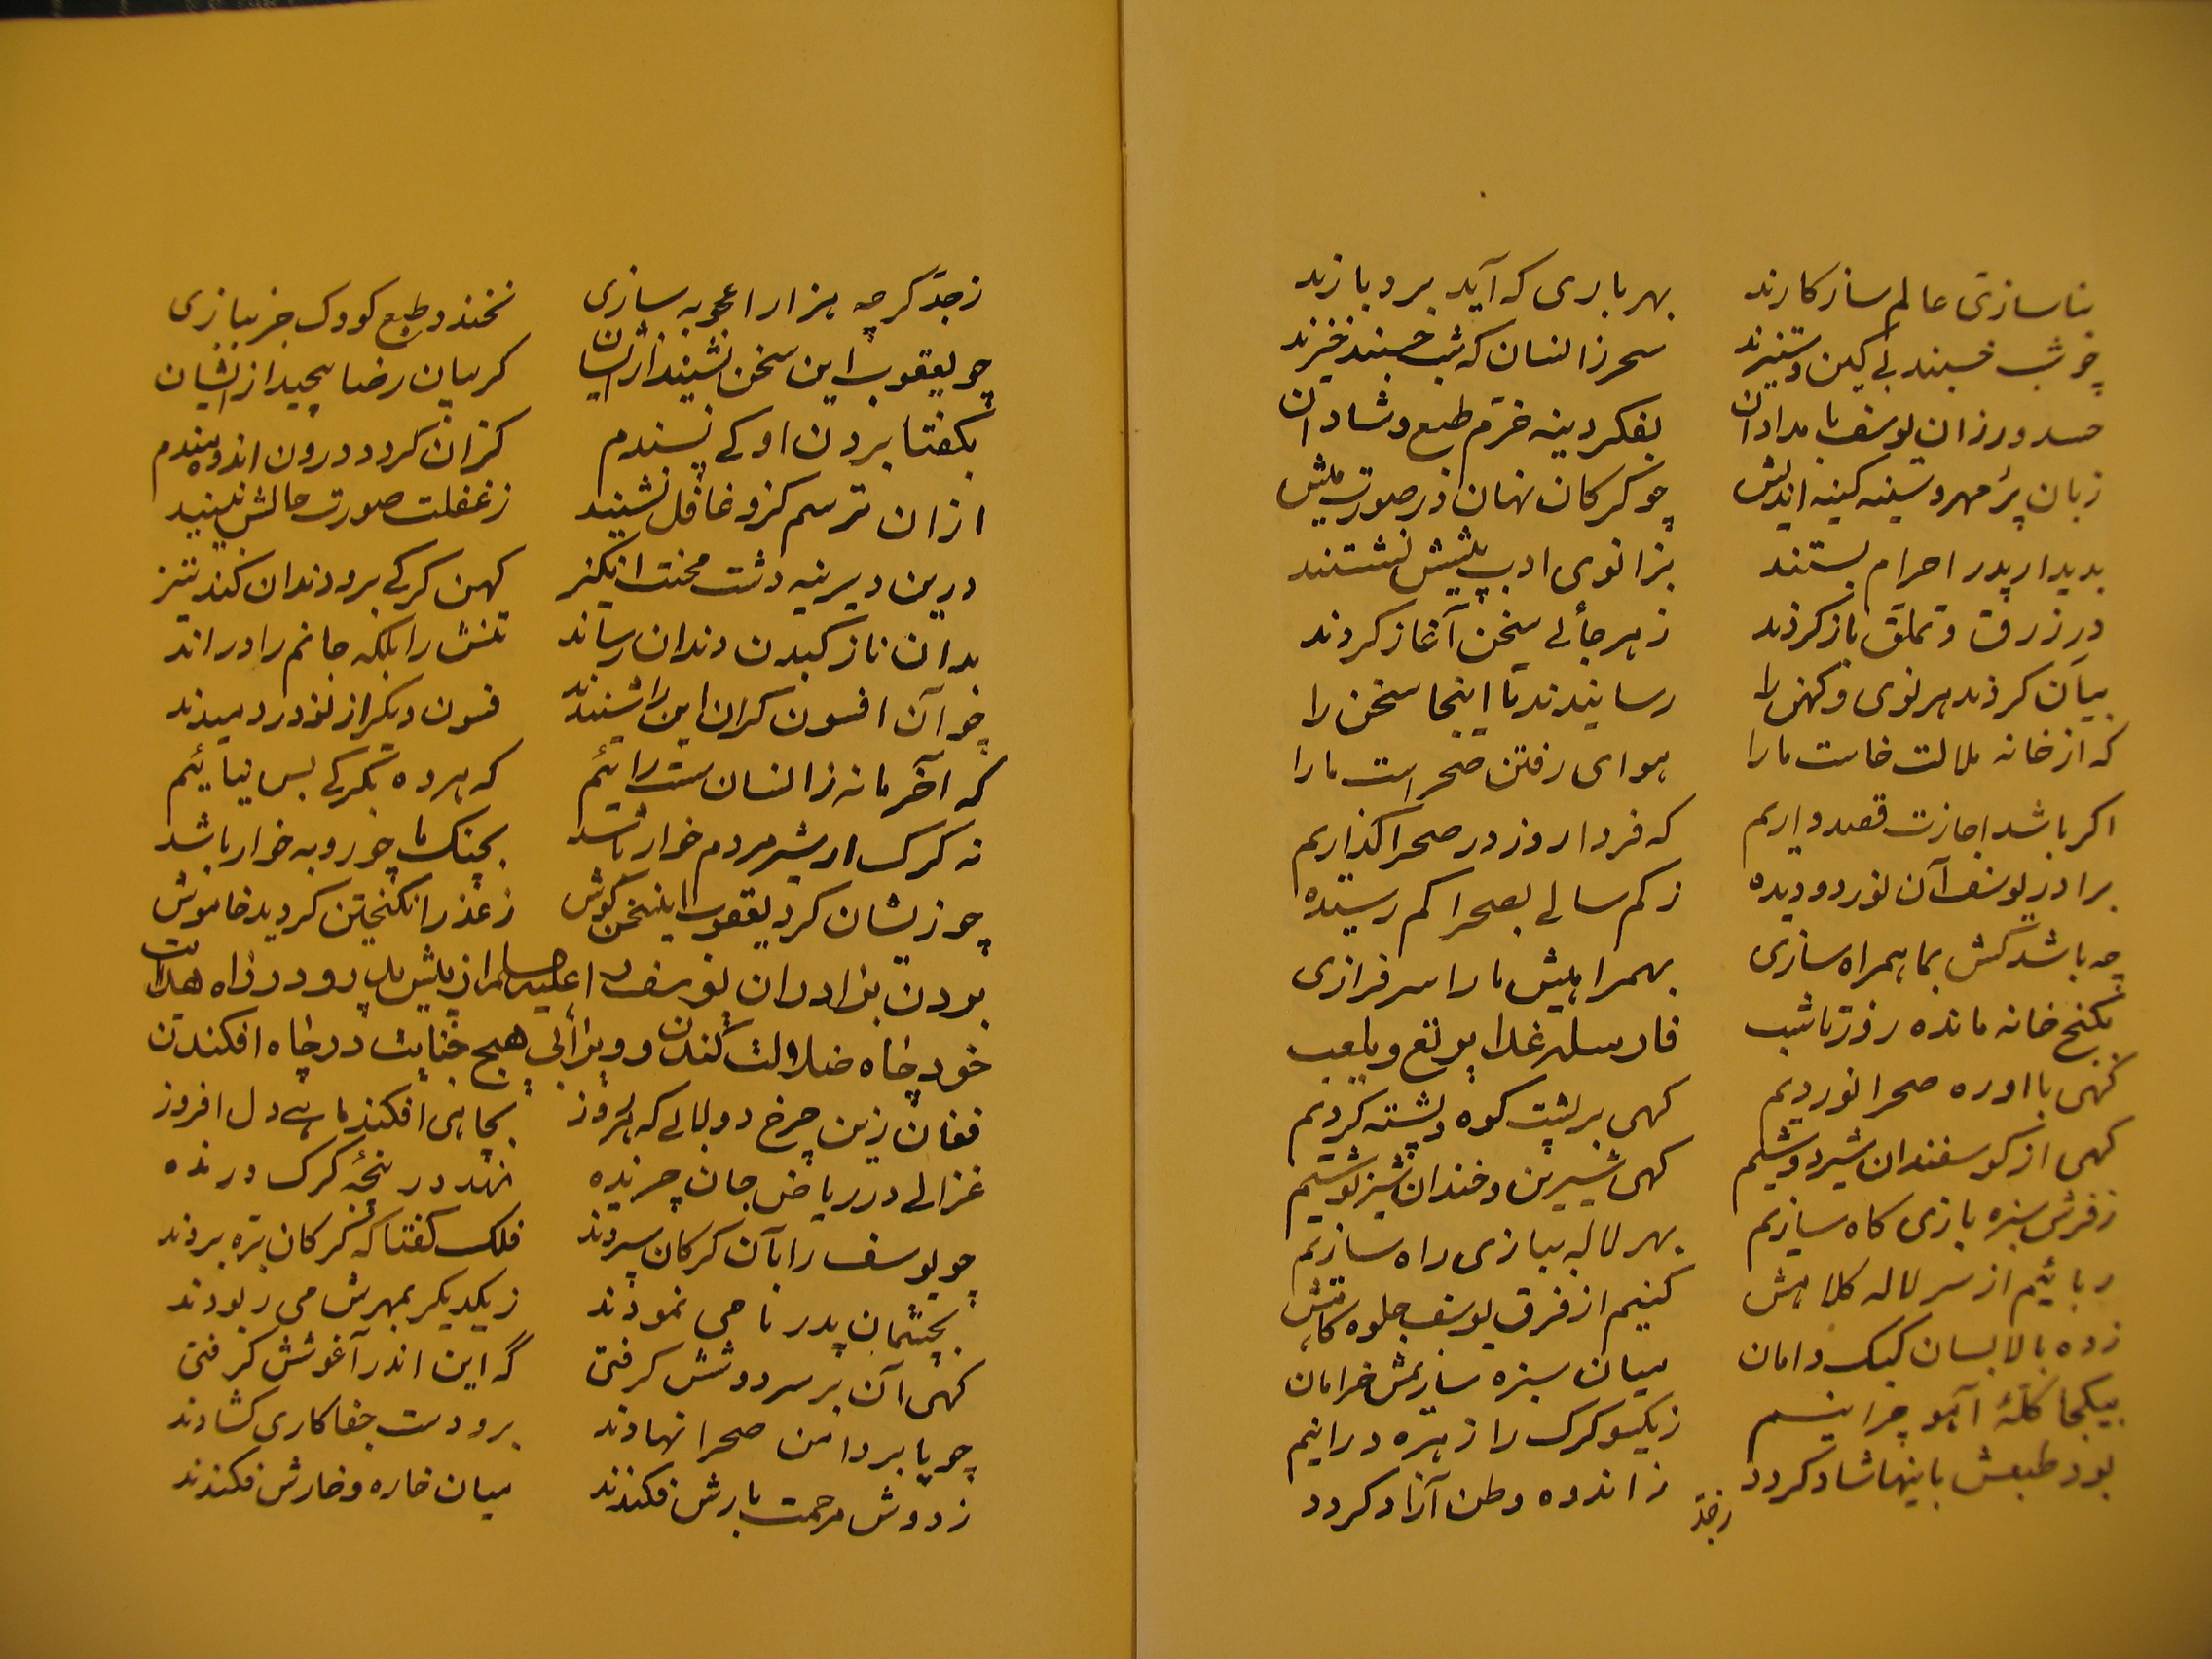 بناسازی عالم سازکارند بهر باری که آید بردبارند
چو شب خسبند بی کین و ستیزند سحر زانسان که شب خسبند خیزند
حسد ورزان یوسف بامدادان بفکر دینه خرم طبع و شادان
زبان پر مهر و سینه کینه اندیش چو کرکان نهان در صورت میش
بدیدار پدر احرام بستند بزانوی ادب پیشش نشستند
در زرق و تملق باز کردند ز هر جائی سخن آغاز کردند
بیان کردند هر نوی و کهن را رسانیدند تا اینجا سخن را
که از خانه ملالت خاست ما را هوای رفتن صحراست ما را
اکر باشد اجازت قصد داریم که فردا روز در صحرا کذاریم
برادر یوسف آن نور دو دیده ز کم سالی بصحرا کم رسیده
چه باشد کش بما همراه سازی بهمراهیش ما را سرفرازی
بکنج خانه مانده روز تا شب فارسله غدا یرتع و یلعب
کهی با او ره صحرا نوردیم کهی بر پشت کوه و پشته کردیم
کهی از کوسفندان شیر دوشیم کهی شیرین و خندان شیر نوشیم
ز فرش سبزه بازی کاه سازیم بهر لاله ببازی راه سازیم
ربائیم از سر لاله کلاهش کنیم از فرق یوسف جلوه کاهش
زده بالا بسان کبک دامان میان سبزه سازیمش خرامان
بیکجا کلهٔ آهو چرانیم ز یکسو کرک را زهره درانیم
بود طبعش باینها شاد کردد ز اندوه وطن آزاد کردد
زجد
ز جد کرچه هزار اعجوبه سازی نخندد طبع کودک جز ببازی
چو یعقوب این سخن بشنید ازایشان کریبان رضا پیچید از ایشان
بکفتا بردن او کی پسندم کزان کردد درون اندوهمندم
ازان ترسم کزو غافل نشینید ز غفلت صورت حالش نبینید
درین دیرینه دشت محنت انکیز کهن کرکی برو دندان کند تیز
بدان نازک بدن دندان رساند تنش را بلکه جانم را دراند
چو آن افسون کران این را شنیدند فسون دیکر از نو در دمیدند
که آخر ما نه زانسان سست رائیم که هر ده تن بکرکی بس نیائیم
نه کرک ار شیر مردم خوار باشد بچنک ما چو روبه خوار باشد
چو زیشان کرد یعقوب اینسخن کوش ز عذر انکیختن کردید خاموش
بردن برادران یوسف را علیه السلام از پیش پدر و در راه هدایت
خود چاه ضلالت کندن و ویرا بی هیچ جنایت در چاه افکندن
فغان زین چرخ دولابی که هر روز بچاهی افکند ماهی دل افروز
غزالی در ریاض جان چرنده نهد در پنجهٔ کرک درنده
چو یوسف را بآن کرکان سپردند فلک کفتا که کرکان بره بردند
بچشمان پدر تا می نمودند ز یکدیکر بمهرش می ربودند
کهی آن بر سر دوشش کرفتی گه این اندر آغوشش کرفتی
چو پا بر دامن صحرا نهادند برو دست جفاکاری کشادند
ز دوش مرحمت بارش فکندند میان خاره و خارش فکندند